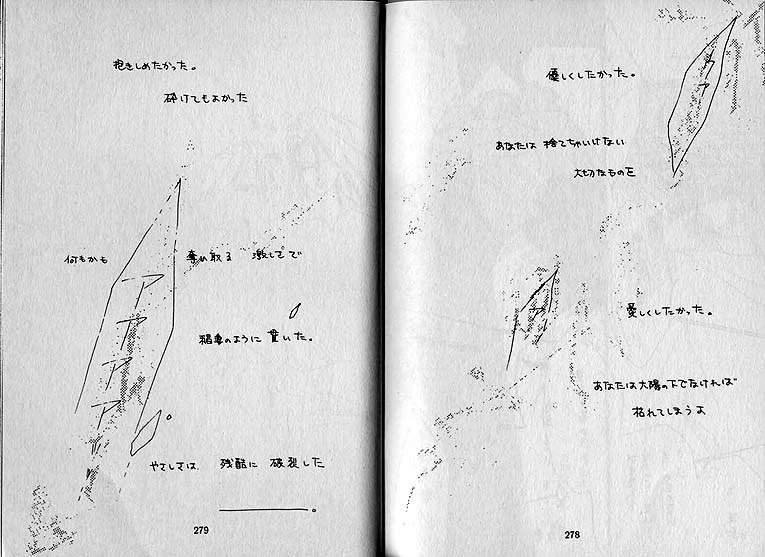 優しくしたかった。
あなたは 捨てちゃいけない
大切なものを
ア
ア
愛しくしたかった。
あなたは太陽の下でなければ
枯れてしまうよ
278
抱きしめたかった。
砕けてもよかった
何もかも 奪い取る 激しさで
アアアア
稲妻のように 貫いた。
やさしさは 残酷に 破裂した
279